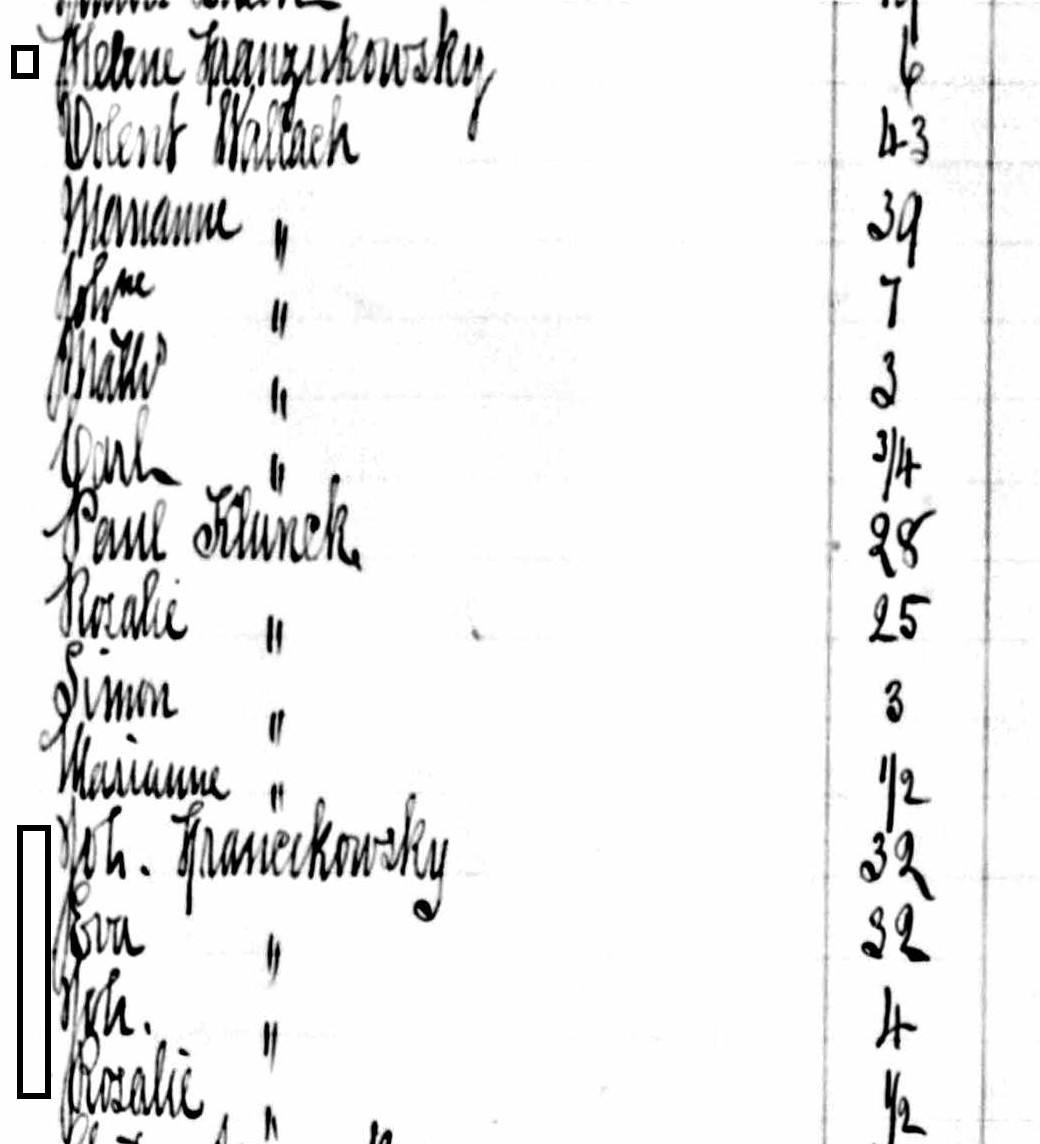 Helene Franziskowsky 6
Valent Wallach 43
Marianne " 39
Joh.ne " 7
Math. " 3
Carl " 3/4
Paul Klunck 28
Rosalie " 25
Simon " 3
Marianne " 1/2
Joh. Franckowsky 32
Eva " 32
Joh. " 4
Rosalie " 1/2